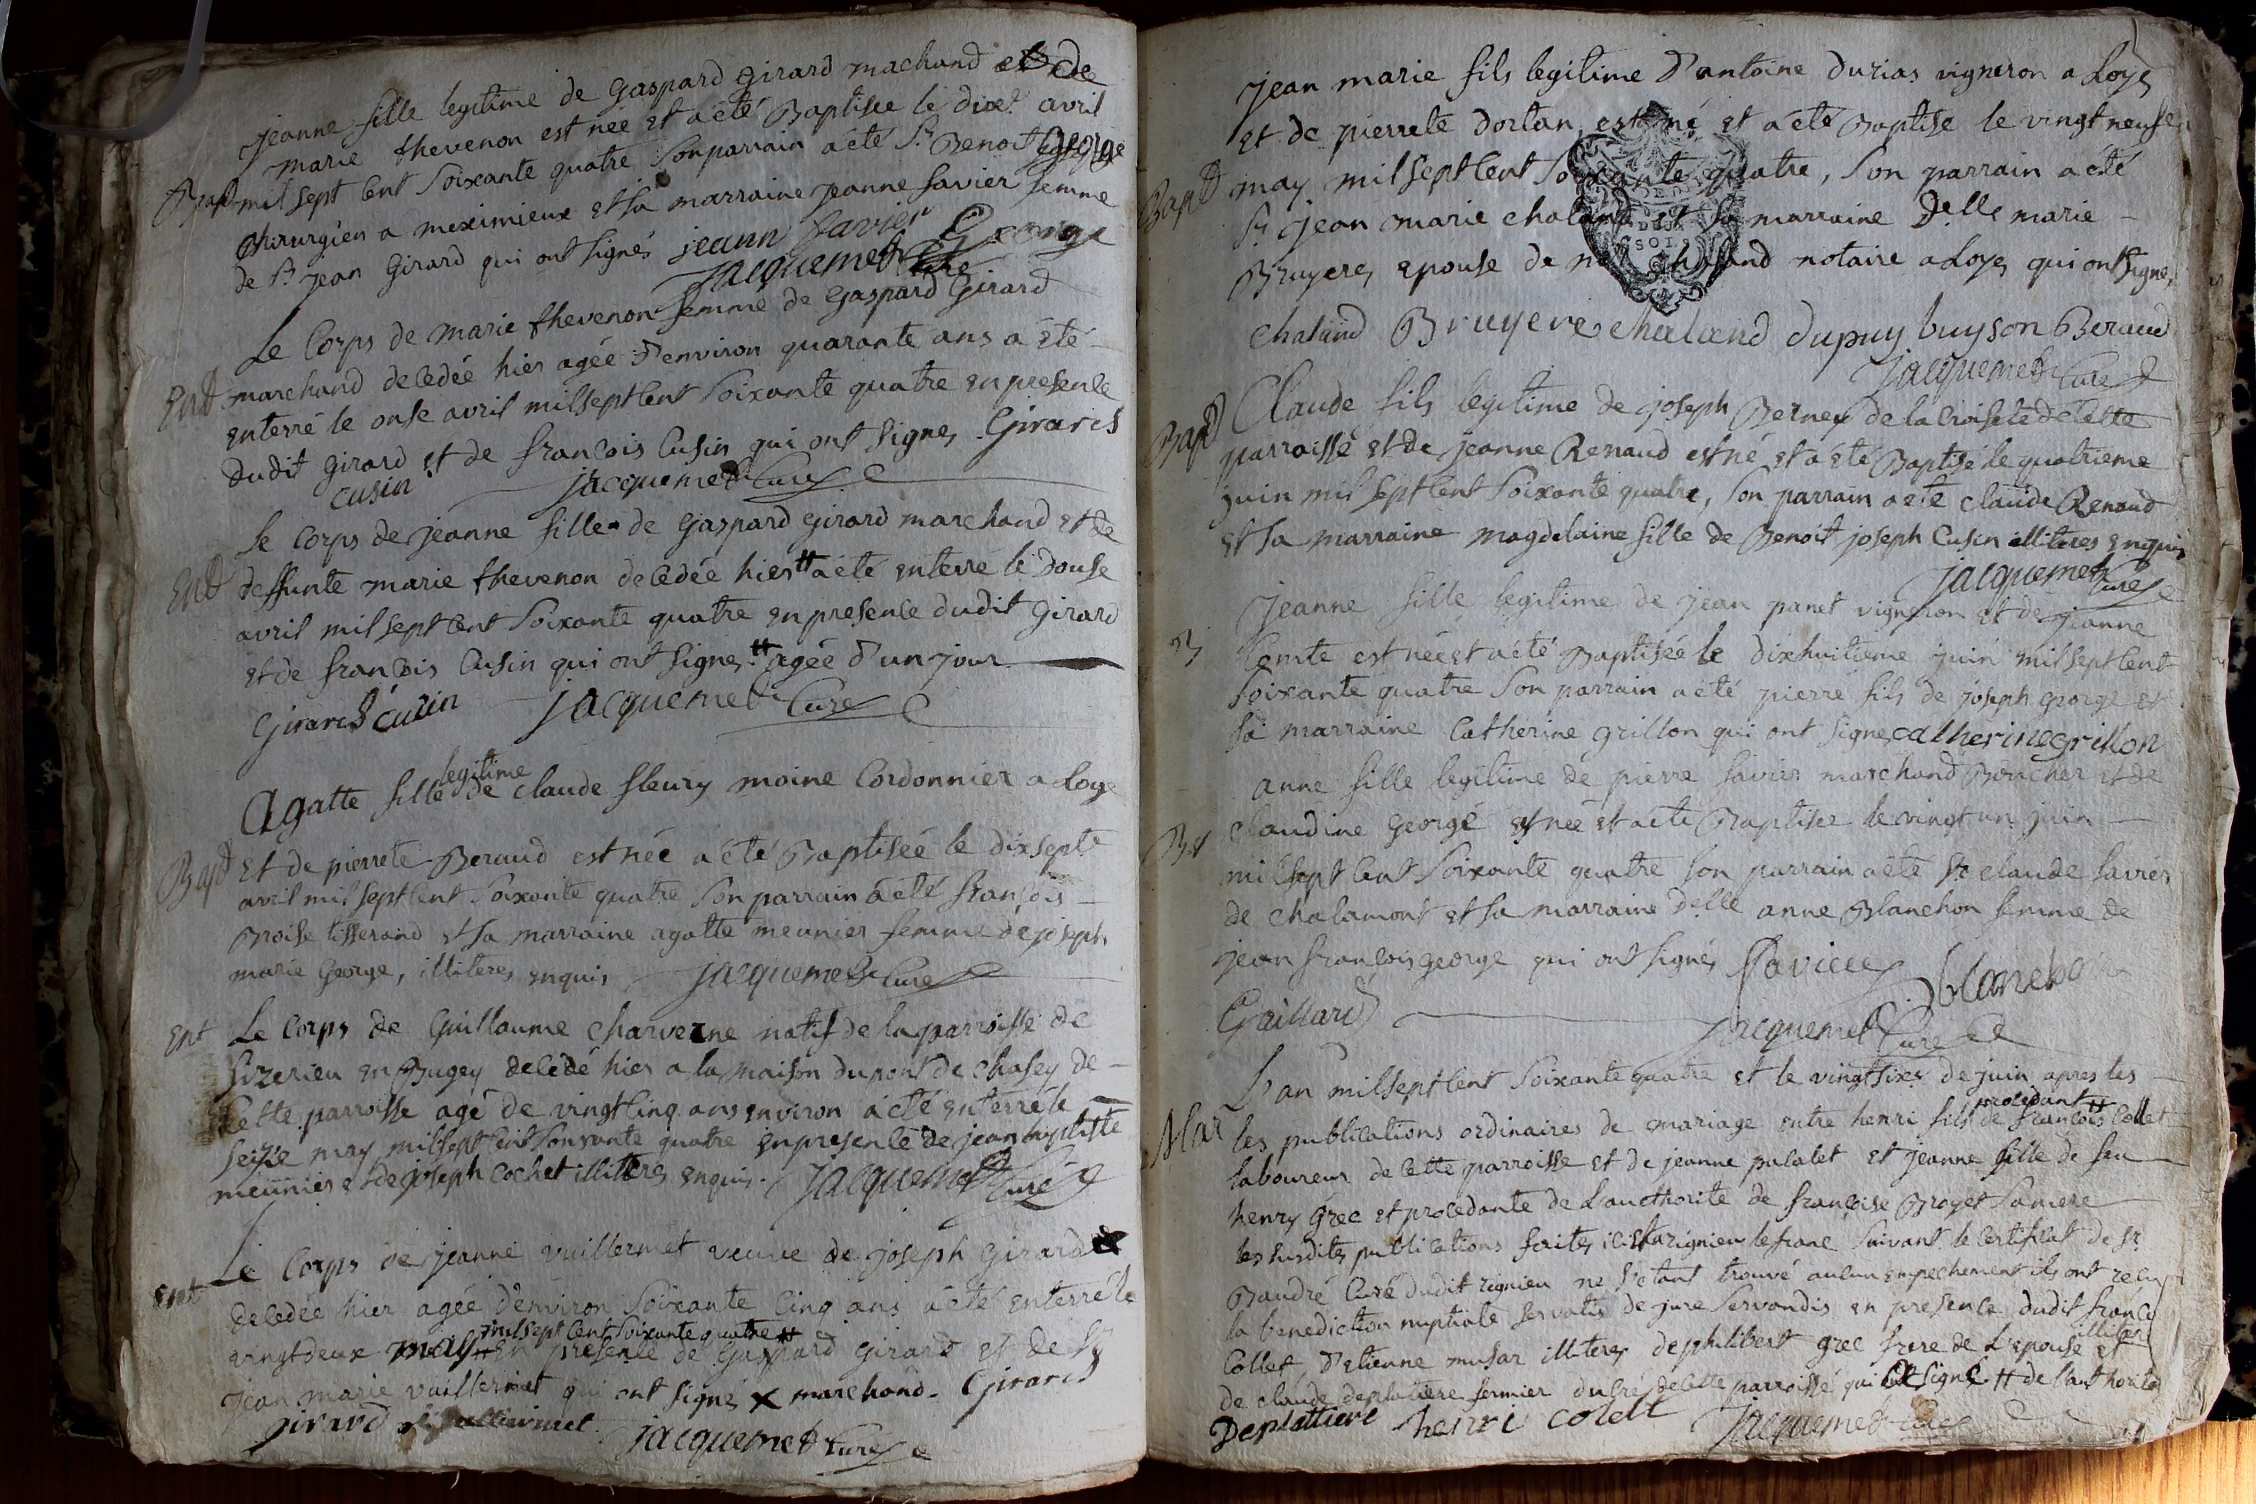 jeanne fille legitime de gaspard girard machand et de
marie thevenon est née et a été Baptisee le dixe avril
Bapt mil sept Cent Soixante quatre Son parrain a été Sr Benoit george
chirurgien a meximieux et sa marraine jeanne Savier femme
de Sr jean Girard qui ont signés jeann Savier George
jacquemet Curé
Le Corps de marie thevenon femme de gaspard Girard
Ent marchand decedée hier agée d'environ quarante ans a été
enterré le onse avril mil sept Cent Soixante quatre en presence
dudit girard et de francois Cusin qui ont signes Girard
cusin jacquemet Curé
Le Corps de jeanne fille de gaspard girard marchand et de
Ent deffunte marie thevenon decedée hier # a été enterré le douse
avril mil sept Cent Soixante quatre en presence dudit girard
et de francois Cusin qui ont signes # agée d'un jour
Girard cuzin jacquemet Curé
legitime
Agatte fille de claude fleury moine Cordonnier a Loye
Bapt et de pierrete Beraud est née a été Baptisée le dixsept
avril mil sept Cent Soixante quatre Son parrain a été françois
Broise tisserand et sa marraine agatte meunier femme de joseph
marie george, illiteres enquis jacquemet Curé
Ent Le Corps de Guillaume charverne natif de la parroisse de
en Bugey decédé hier a la maison du pont de chasey de
Cette parroisse agé de vingt Cinq ans environ a été enterré le
seizie may mil sept Cent Soixante quatre en presence de jean baptiste
meunier et de joseph cochet illiteres enquis. jacquemet Curé
Le Corps de jeanne vuillermet veuve de joseph girard
Ent decedée hier agée d'environ Soixante Cinq ans a été enterré le
mil sept Cent Soixante quatre #
vingt deux may # en presence de gaspard girard et de Sr
jean marie vuillermet qui ont signé x marchand. Girard
girard vuilliermet jacquemet Curé
jean marie fils legitime d'antoine durias vigneron a Loye
et de pierrete dortan est né et a été Baptise le vingt neuf
Bapt may mil sept Cent Soixante quatre, Son parrain a été
Sr jean marie chaland et sa marraine Delle marie
Bruyere epouse de chaland notaire a Loye qui ont signe
SOLS
chaland Bruyere chaland dupuy buyson Beraud
jacquemet Curé
Claude fils legitime de joseph Berney de la Croisete de Cette
Bapt parroisse et de jeanne Renaud est né et a été Baptisé le quatrieme
juin mil sept Cent Soixante quatre, Son parrain a été claude Renaud
et sa marraine magdelaine fille de Benoit joseph Cusin illiteres enquis
jacquemet Curé
jeanne fille legitime de jean panet vigneron et de jeanne
B Comte est née et a été Baptisée le dixhuitieme juin mil sept Cent
Soixante quatre Son parrain a été pierre fils de joseph george et
sa marraine Catherine grillon qui ont signe catherine grillon
anne fille legitime de pierre savier marchand Boucher et de
Bt claudine george est née et a été Baptisee le vingt un juin
mil sept Cent Soixante quatre son parrain a été Sr claude savier
de chalamont et sa marraine Delle anne Blanchon femme de
jean françois george qui ont signés Savier
Gaillard blanchon
jacquemet Curé
L'an mil sept Cent Soixante quatre et le vingt sixe de juin apres les
procedant #
Mar les publications ordinaires de mariage entre henri fils de francois Collet
laboureur de Cette parroisse et de jeanne palatet et jeanne fille de feu
henry grec et procedante de l'aucthorite de françoise Broyet sa mere
les susdites publications faites ici et a rignieu le franc suivant le certificat de Sr
Baudré Curé dudit rignieu ne s'etant trouvé aucun empechement ils ont recu
la benediction nuptiale servatis de jure servandis en presence dudit francois
Collet, d'etienne musar illiteres de philibert grec frere de l'epouse illitere et
de claude deplatiere fermier du de Cette parroisse qui ont signé # de l'authorite
Deplattiere henri colett jacquemet Curé